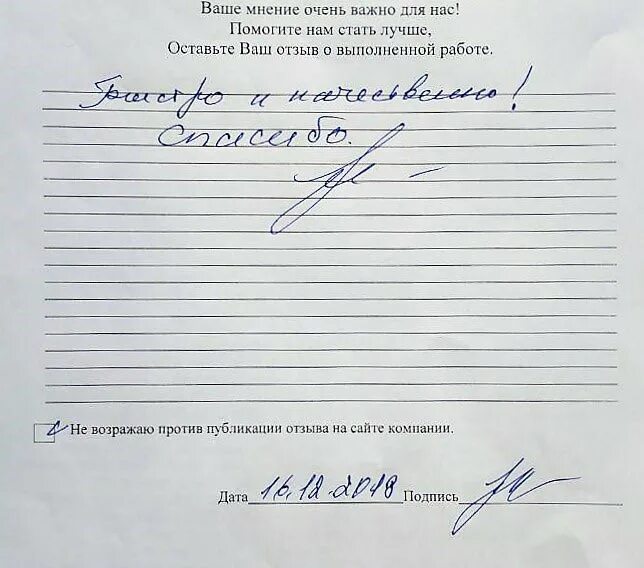 Ваше мнение очень важно для нас!
Помогите нам стать лучше,
Оставьте Ваш отзыв о выполненной работе.
Быстро и качественно!
спасибо.
Не возражаю против публикации отзыва на сайте компании.
Дата 16.12.2018 Подпись